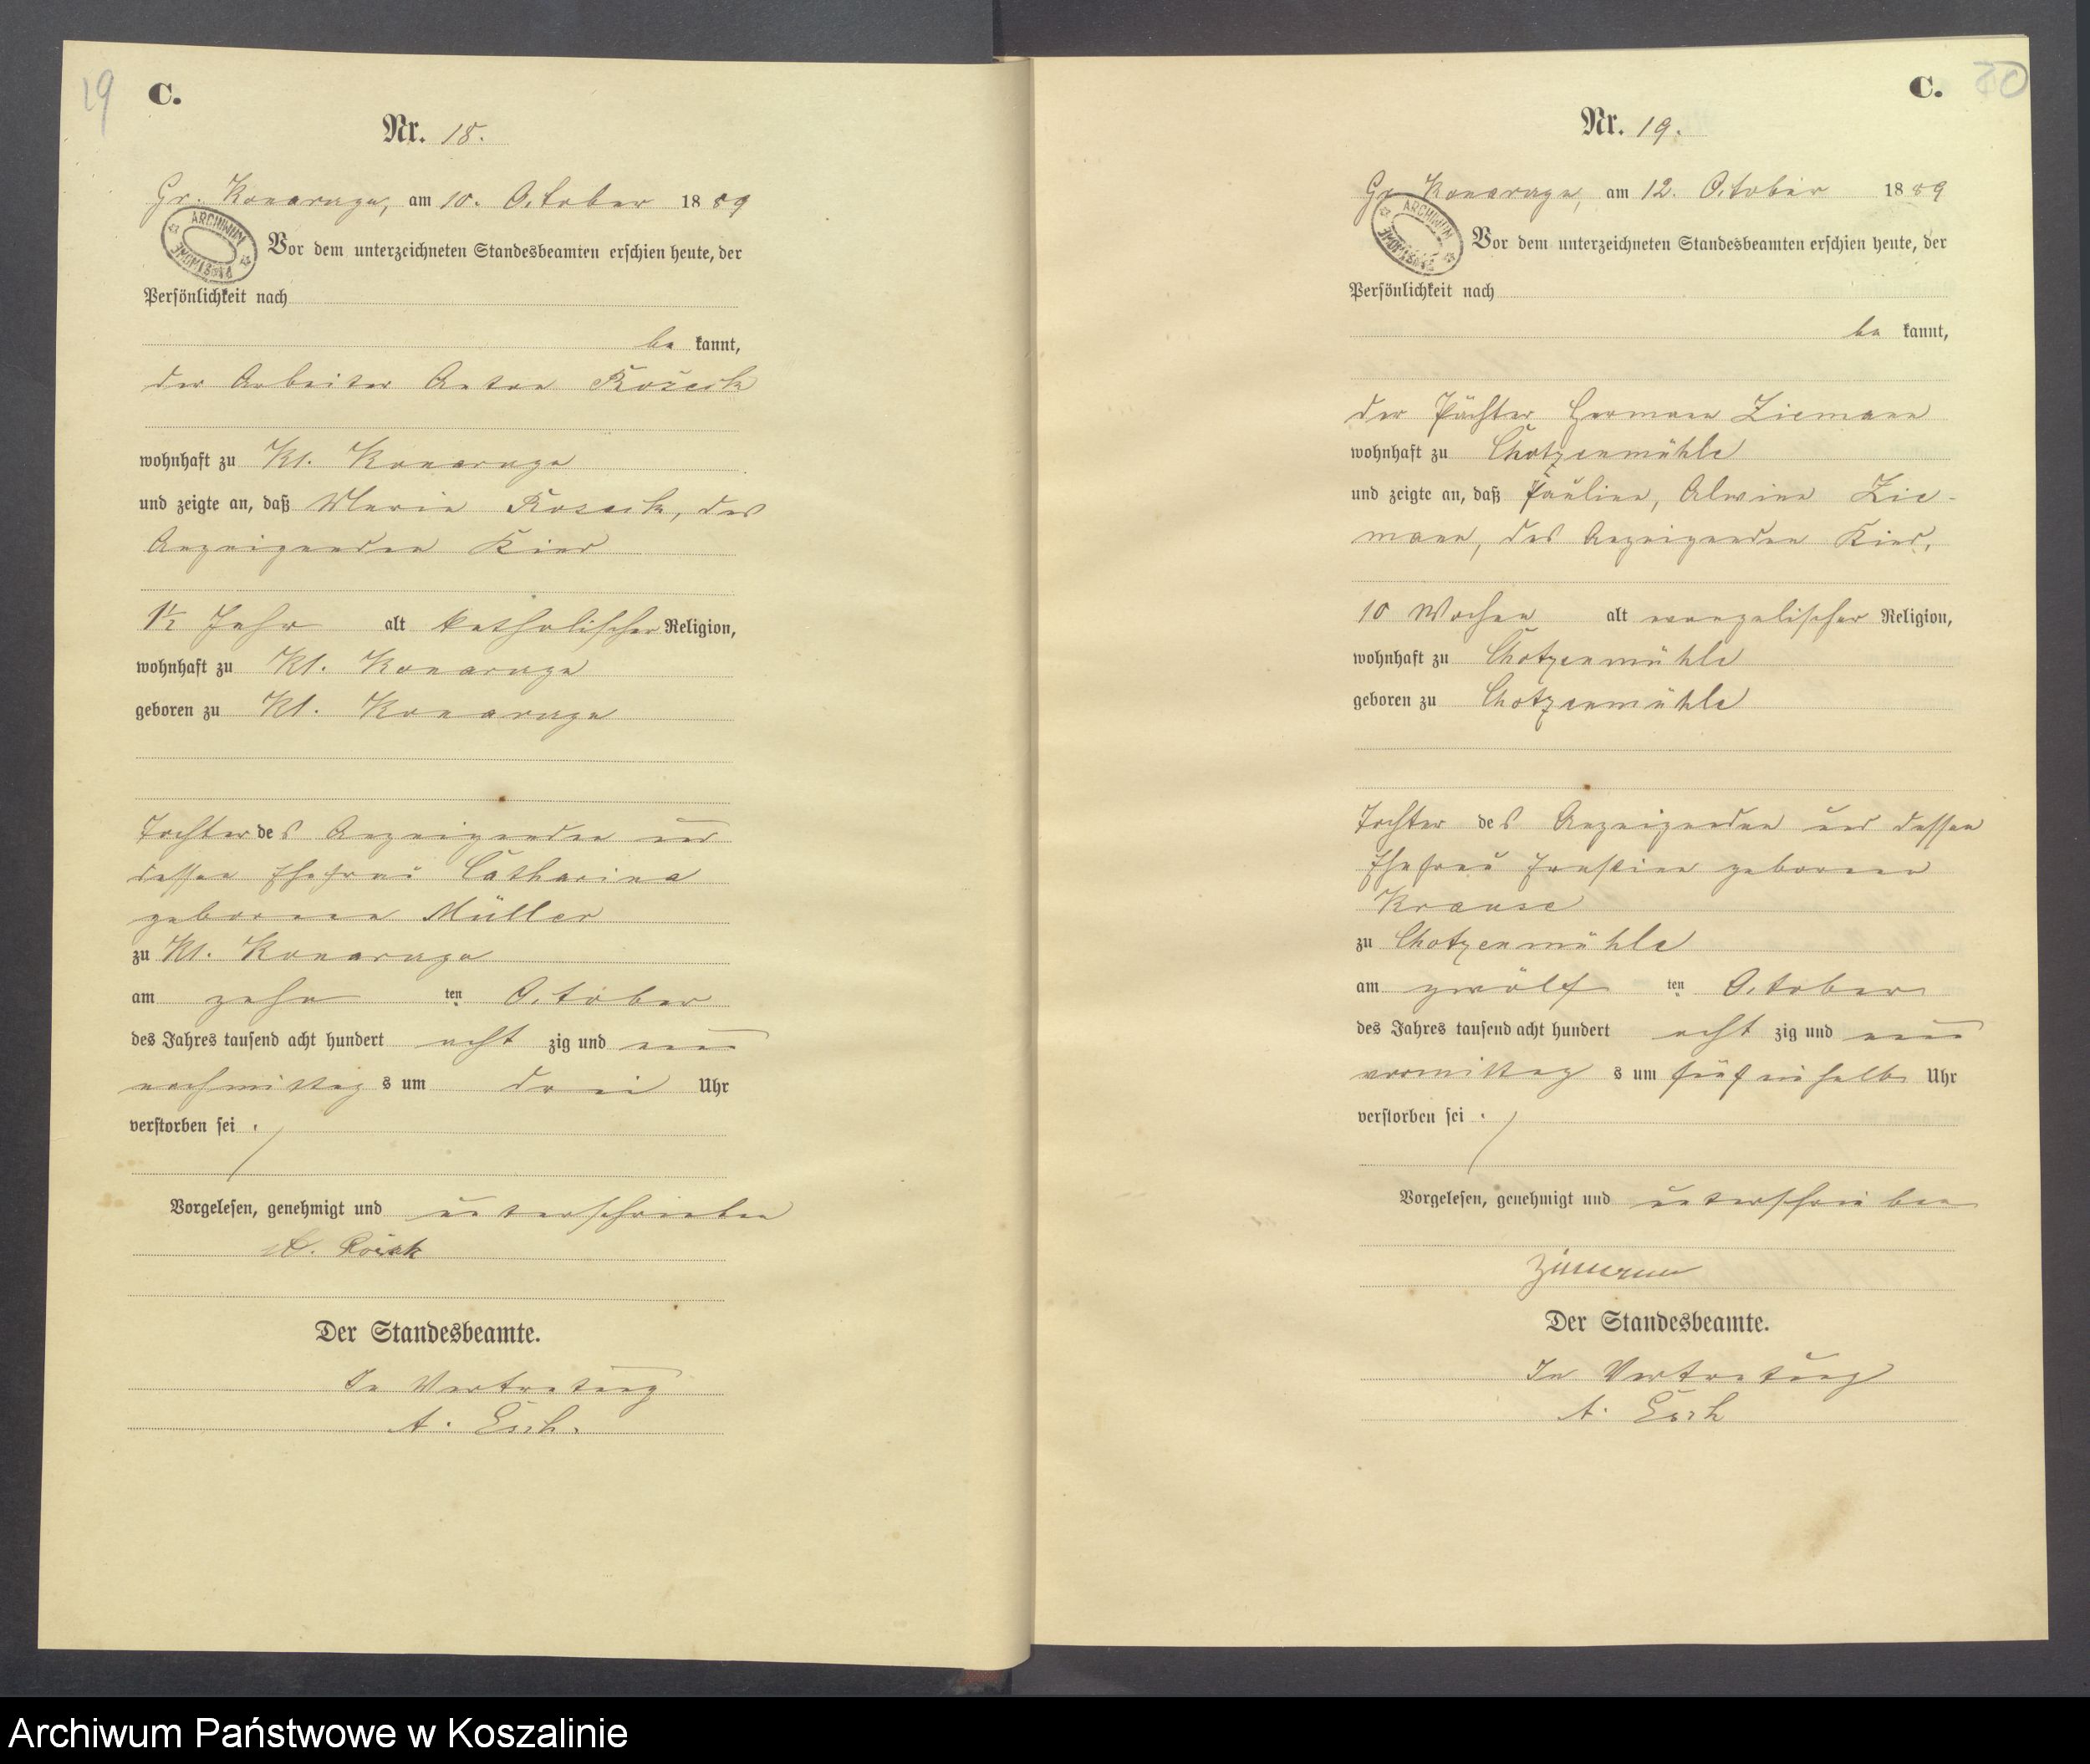 19
C.
Nr. 18.
Gr. Konarzyn, am 10. October 1889
ARCHIWUM
Vor dem unterzeichneten Standesbeamten erschien heute, der
Persönlichkeit nach
be kannt,
der Arbeiter Anton
wohnhaft zu Kl. Konarzyn
und zeigte an, daß Maria, des
Anzeigenden Kind
1½ Jahr alt katholischer Religion,
wohnhaft zu Kl. Konarzyn
geboren zu Kl. Konarzyn
Tochter des Anzeigenden und
dessen Ehefrau Catharina
geborenen Müller
zu Kl. Konarzyn
am zehn ten October
des Jahres tausend acht hundert acht zig und neun
nachmittag s um drei Uhr
verstorben sei.
Vorgelesen, genehmigt und unterschrieben
Der Standesbeamte.
In Vertretung
A.
C. 20
Nr. 19.
Gr. Konarzyn, am 12. October 1889
ARCHIWUM
Vor dem unterzeichneten Standesbeamten erschien heute, der
Persönlichkeit nach
be kannt,
der Pächter Hermann Ziemann
wohnhaft zu Chotzenmühle
und zeigte an, daß Pauline, Alwine Zie-
mann, des Anzeigenden Kind,
10 Wochen alt evangelischer Religion,
wohnhaft zu Chotzenmühle
geboren zu Chotzenmühle
Tochter des Anzeigenden und dessen
Ehefrau Ernstine geborenen
Krause
zu Chotzenmühle
am zwölf ten October
des Jahres tausend acht hundert acht zig und neun
vormittag s um fünfeinhalb Uhr
verstorben sei.
Vorgelesen, genehmigt und unterschrieben
Der Standesbeamte.
In Vertretung
A.
Archiwum Państwowe w Koszalinie